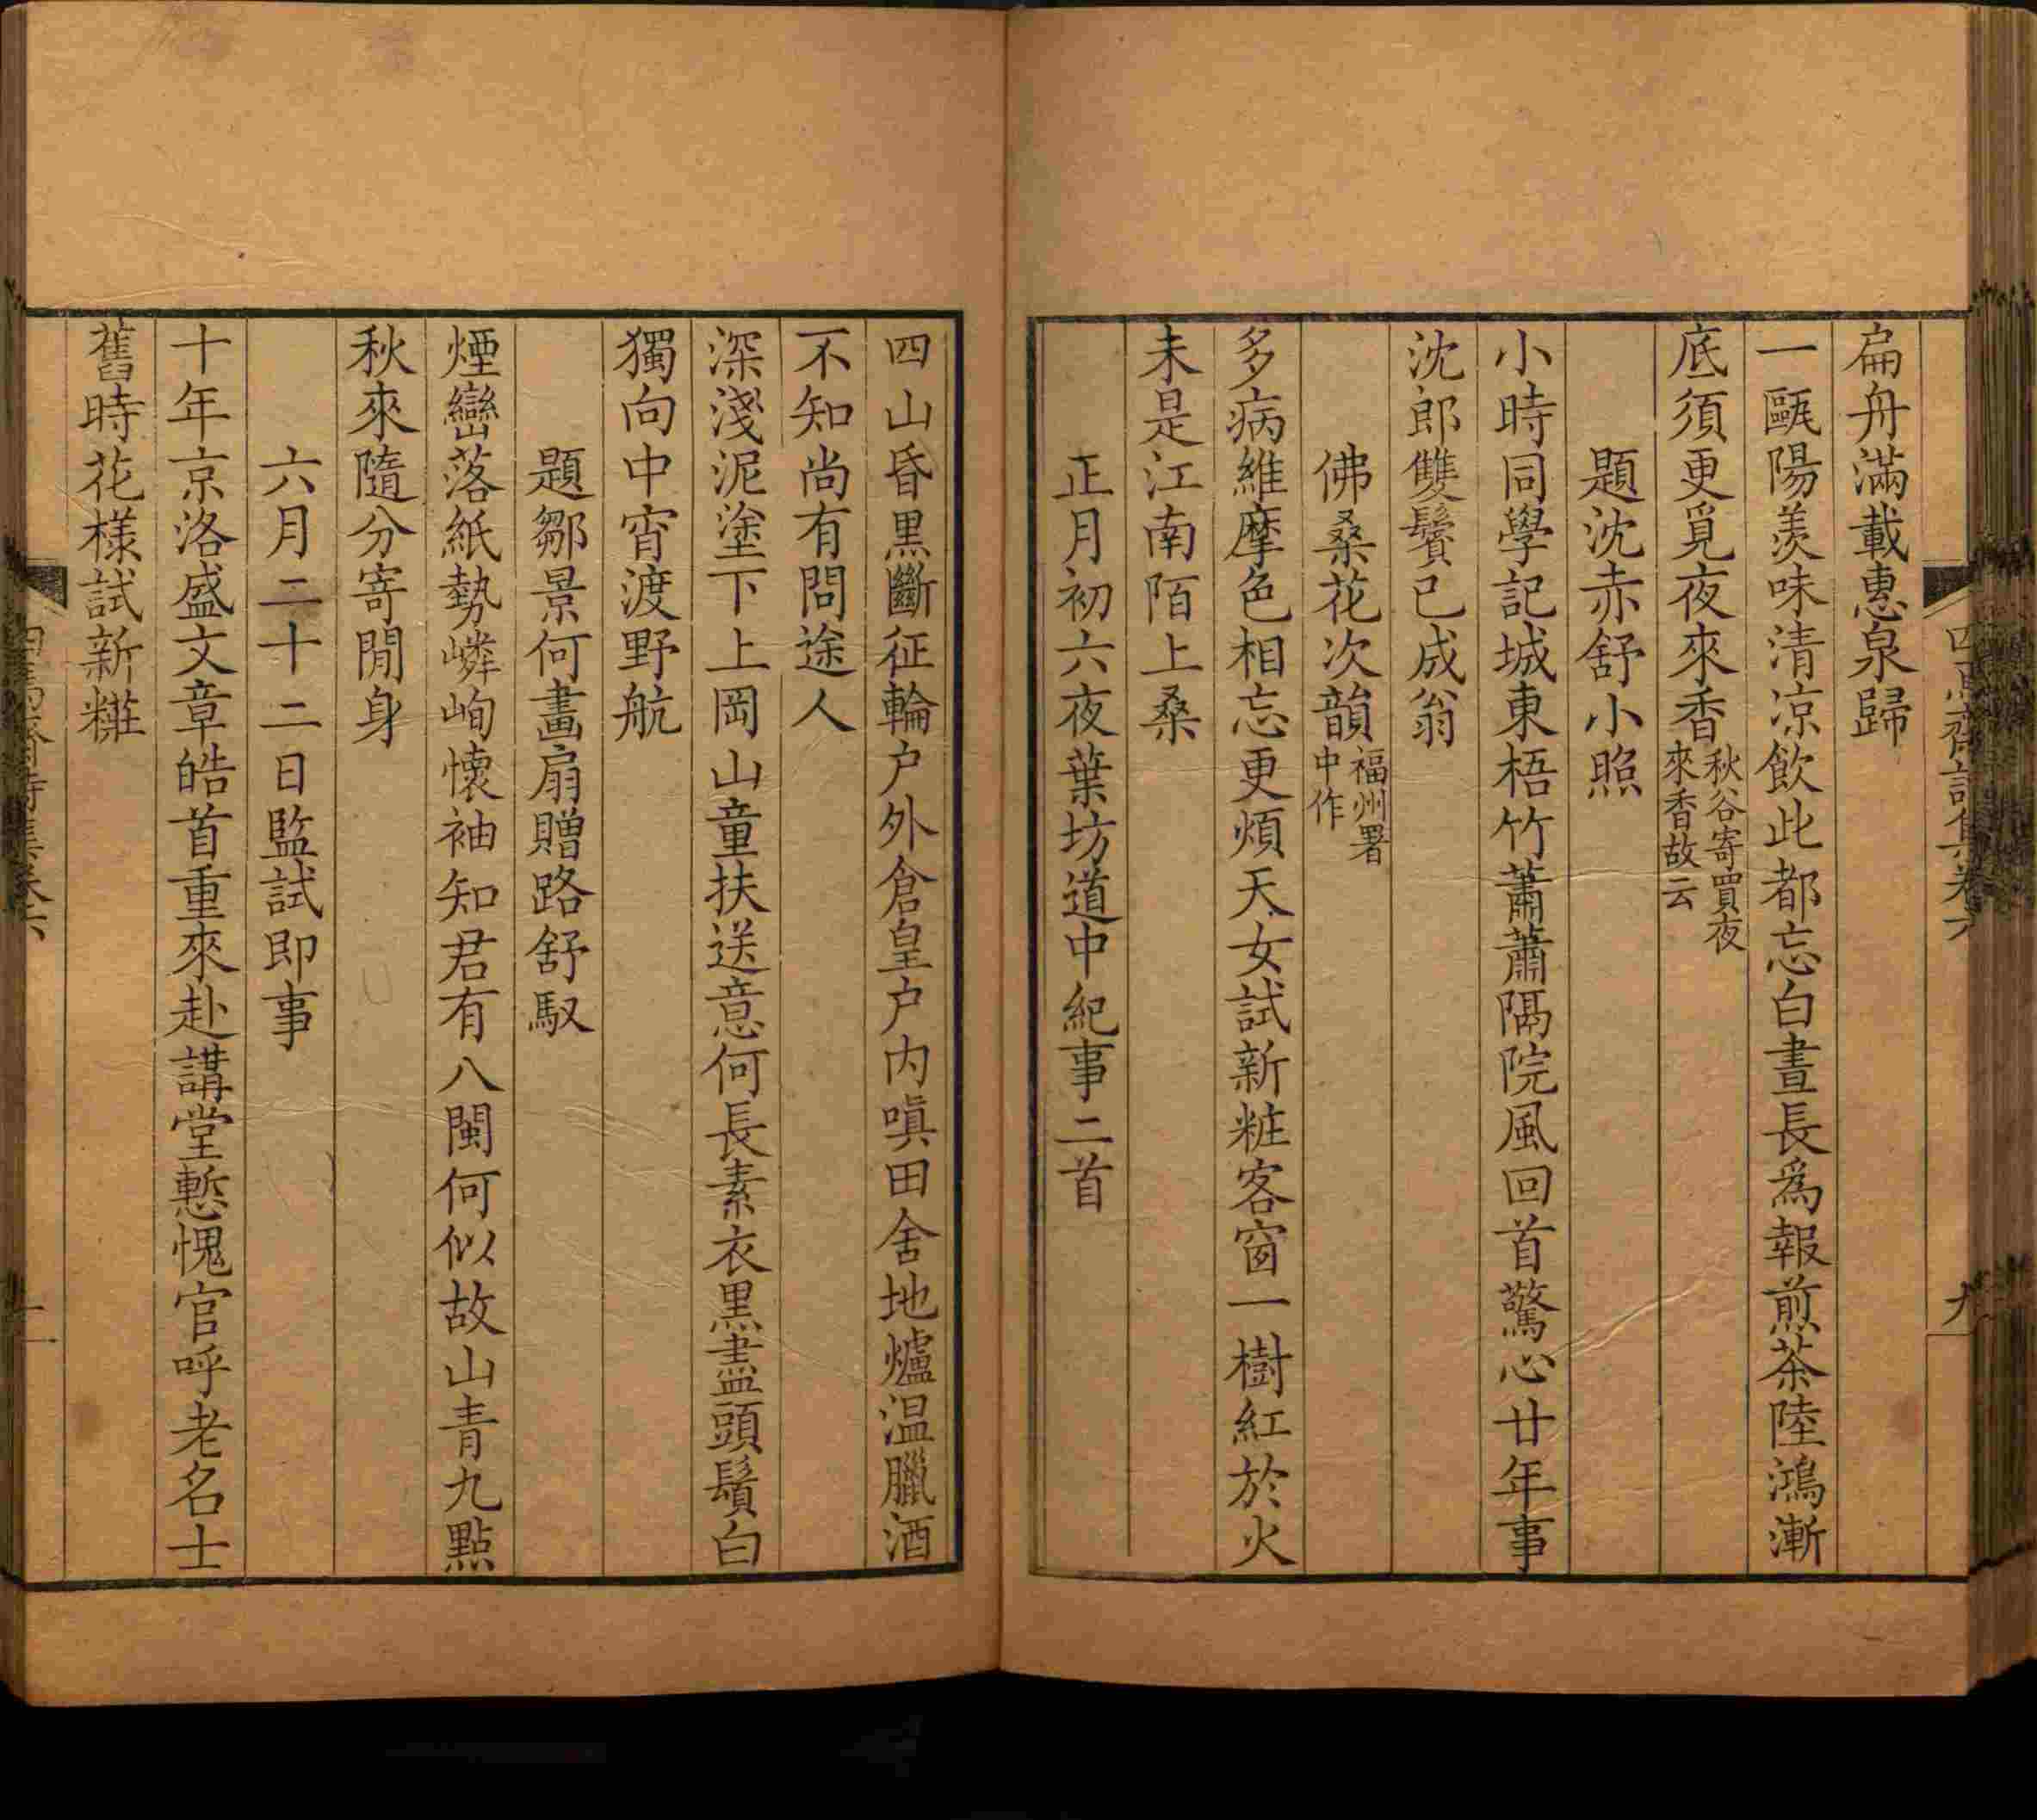 扁舟滿載惠泉歸
一甌陽羨味清涼飲此都忘白晝長爲報煎茶陸鴻漸
底須更覓夜來香秋谷寄買夜來香故云
題沈赤舒小照
小時同學記城東梧竹蕭蕭隔院風回首驚心廿年事
沈郎雙鬢已成翁
佛桑花次韻福州署中作
多病維摩色相忘更煩天女試新粧客窗一樹紅於火
未是江南陌上桑
正月初六夜葉坊道中紀事二首
四山昏黑斷征輪户外倉皇户内嗔田舍地爐温臘酒
不知尚有問途人
深淺泥塗下上岡山童扶送意何長素衣黑盡頭鬚白
獨向中宵渡野航
題鄒景何畫扇贈路舒馭
煙巒落紙勢嶙峋懷袖知君有八閩何似故山青九點
秋來隨分寄閒身
六月二十二日監試即事
十年京洛盛文章皓首重來赴講堂慙愧官呼老名士
舊時花樣試新糚